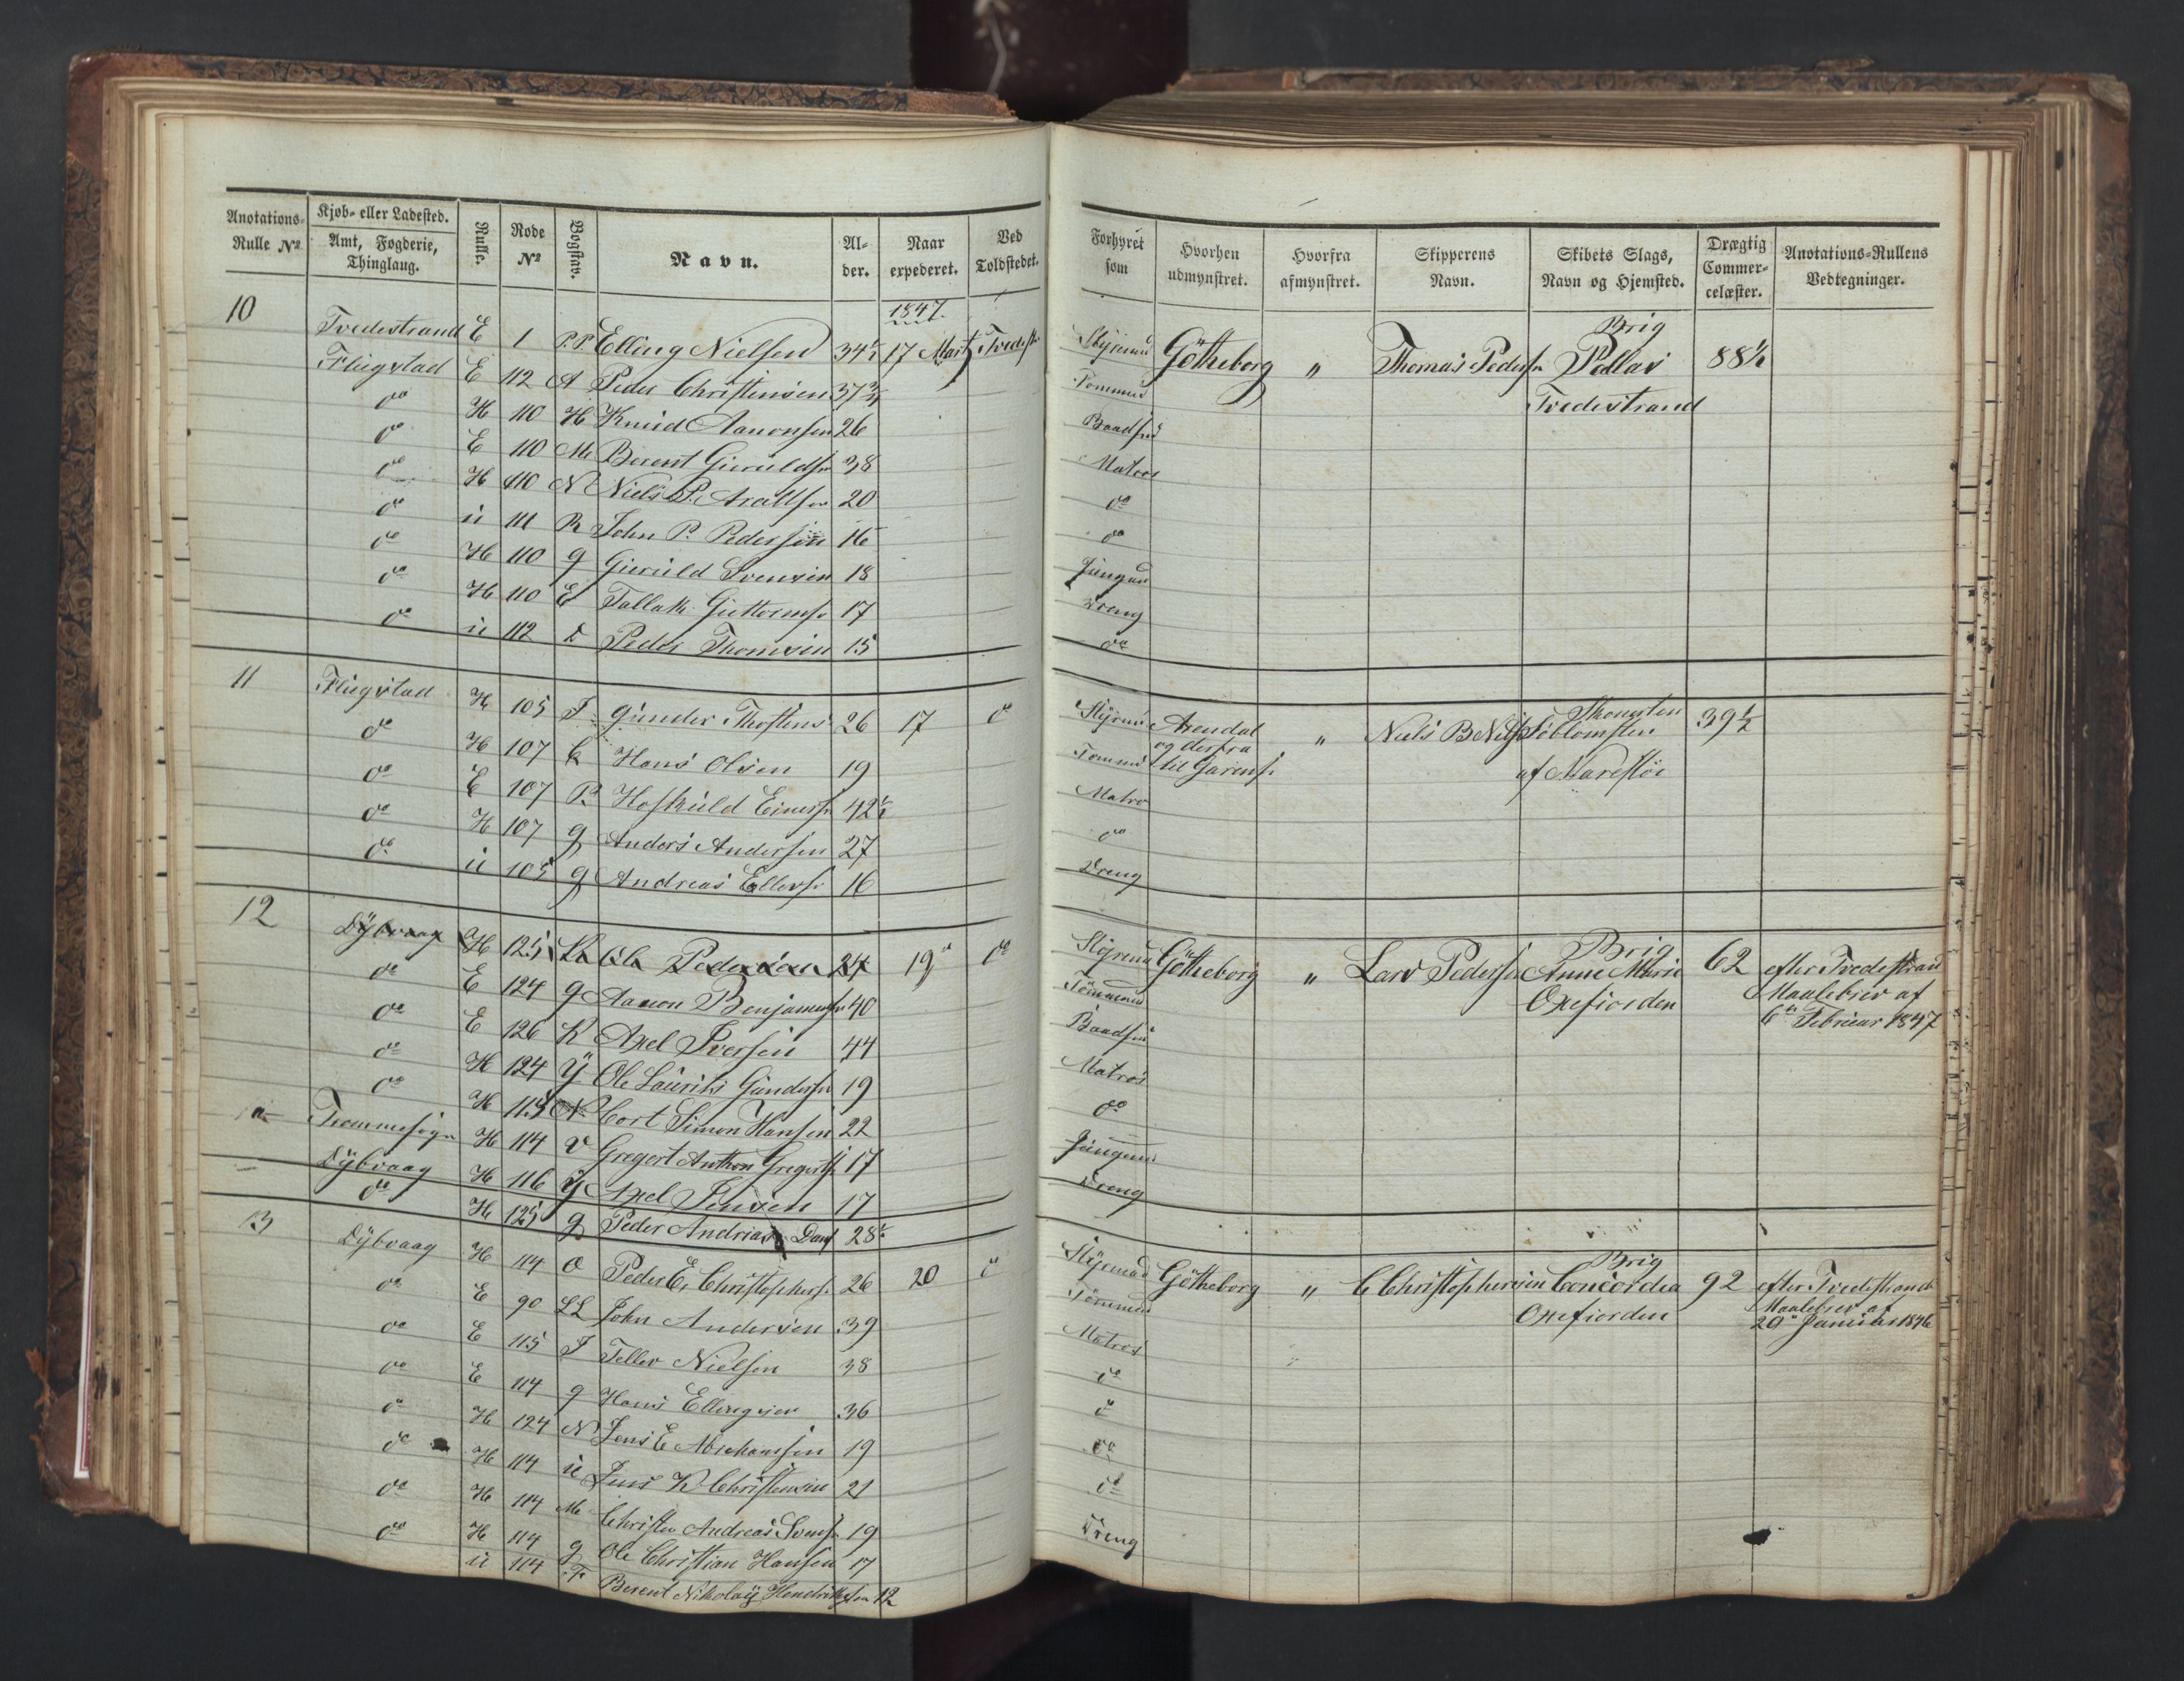 Anotations-Rulle No.
Kjøb- eller Ladested.
Amt, Fogderie, Thinglaug.
Rulle.
Rode No.
Bogstav.
Navn.
Alder.
Naar expederet.
Ved Toldstedet.
1847.
10 Tvedestrand E 1 P.P. Elling Nielsen 34½ 17 Marts Tvedestr
Flugstad E 112 A Peder Christensen 37¾
do H 110 H Knud Aanonsen 26
do E 110 M Berent Gieruldsn 38
do H 110 N Niels P. 20
do u 111 R John P. Pedersen 16
do H 110 g Gieruld Svensen 18
do H 110 E Tallak Guttormsn 17
do u 112 D Peder Thomsen 15
11 Flugstad H 105 F Gunder 26 17 do
do H 107 C Hans Olsen 19
do E 107 P Hoskuld Einersn 42½
do H 107 g Anders Andersen 27
do u 105 g Andreas Ellefsn 16
12 Dybvaag H 125 K Ole Pedersen 24 19 do
do E 124 g Aanon Benjaminsn 40
do E 126 K Axel Iversen 44
do H 124 Y Ole Laurits Gundersn 19
do H 115 N Cort Simon Hansen 22
Tromøesogn H 114 V Gregert Anthon Gregertsn 17
Dybvaag H 116 Y Axel Jensen 17
do H 125 g Peder Andreas Dan 28½
13 Dybvaag H 114 O Peder E. Christophersn 26 20 do
do E 90 LL John Andersen 39
do E 115 F Tellev Nielsen 38
do E 114 g Hans Ellingsen 36
do H 124 N Jens E Abrahamsen 19
do H 114 u Jens K Christensen 21
do H 114 M Christen Andreas Svensn 19
do H 114 g Ole Christian Hansen 17
u 114 F Berent Nikolay Hendriksen 12
Forhyret som
Hvorhen udmynstret.
Hvorfra afmynstret.
Skipperens Navn.
Skibets Slags, Navn og Hjemsted.
Drægtig Commercelæster.
Anotations-Rullens Vedtegninger.
Styrmd Götheborg " Thomas Pedersn Brig Pallas 88½
Tømmd Tvedestrand
Baadsmd
Matros
do
do
Jungmd
Dreng
do
Styrmd Arendal " Niels B Nielsn Skonnerten Søblomsten 39½
Tømmd og derfra til af Narestøe
Matros
do
Dreng
Styrmd Götheborg " Lars Pedersen Brig Anne Marie 62 efter Tvedestrand
Tømmmd Oxefiorden Maalebrev af
Baadsmd 6te Februar 1847
Matros
do
Jungmd
Dreng
Styrmd Götheborg " C Christophersen Brig Concordia 92 efter Tvedestrand
Tømmmd Oxefiorden Maalebrev af
Matros 20de Januar 1846
do
do
do
do
Dreng